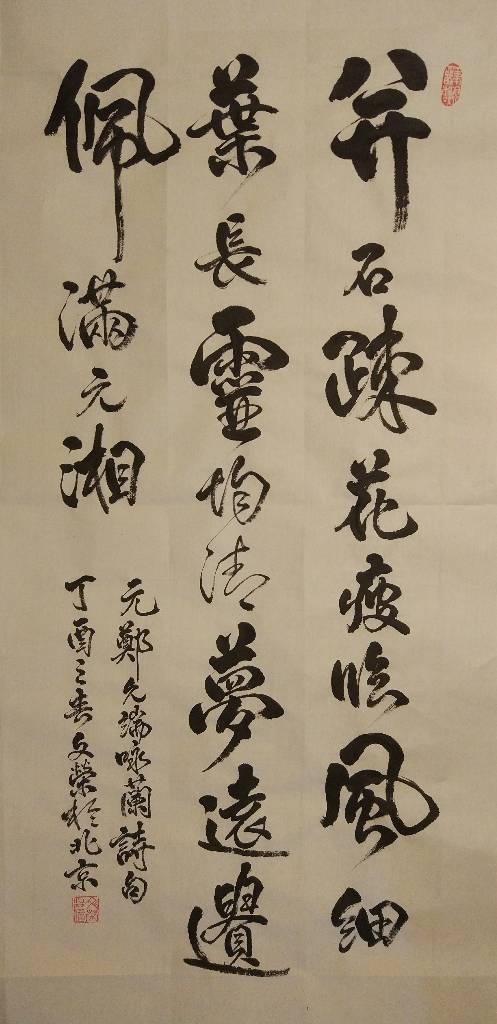 并石踈花瘦临風細
葉長靈均清夢遠遺
佩滿元湘
元鄭允端咏蘭詩句
丁酉之春文榮於北京